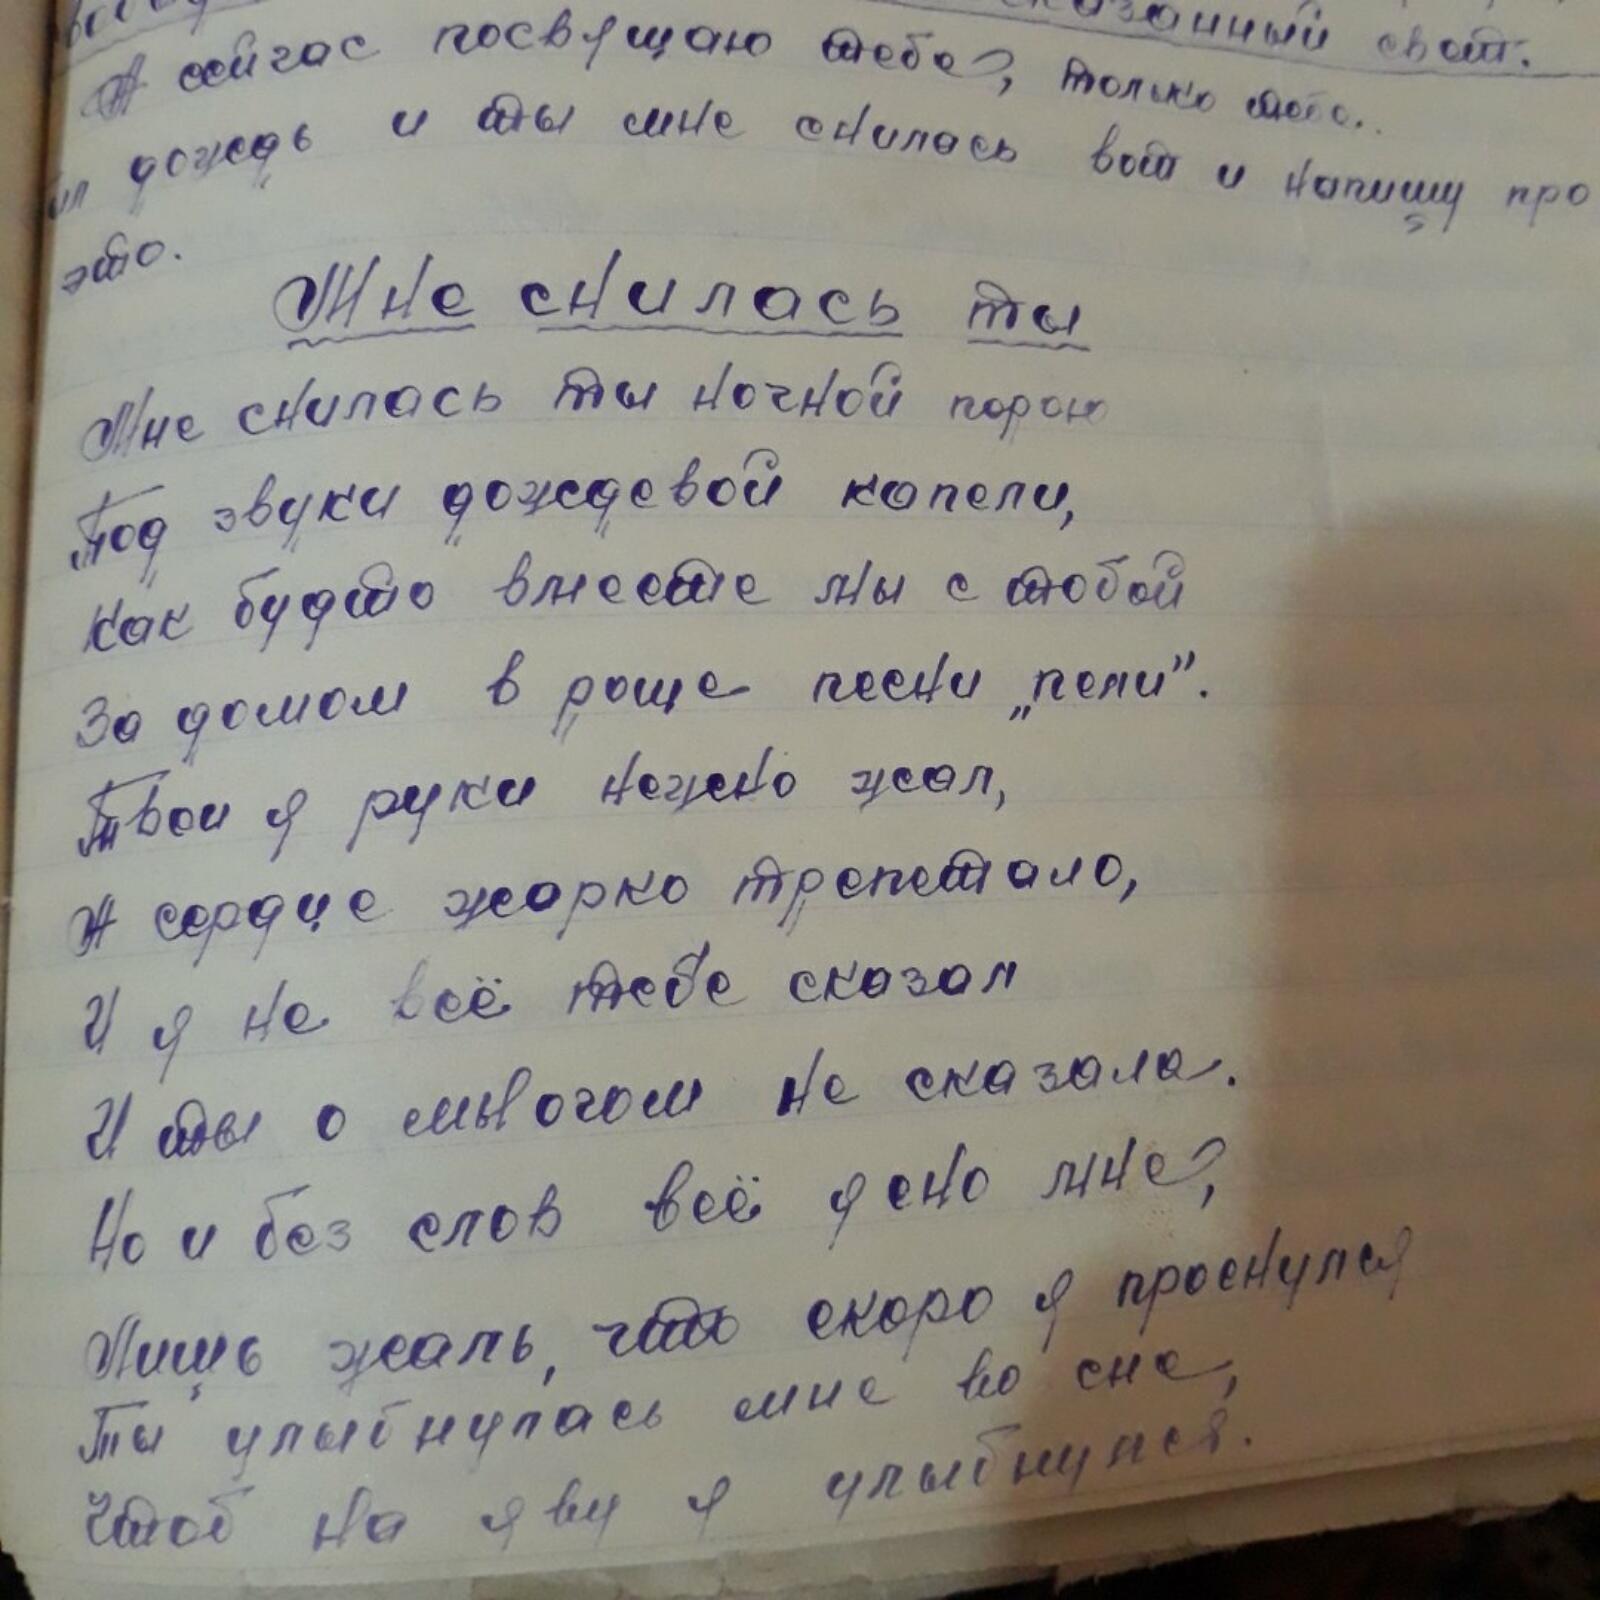 сказанный свет.
А сейчас посвящаю тебе, только тебе..
дождь и ты мне снилась вот и напишу про
это.
Мне снилась ты
Мне снилась ты ночной порою
Под звуки дождевой капели,
Как будто вместе мы с тобой
За домом в роще песни „пели".
Твои я руки нежно жал,
А сердце жарко трепетало,
И я не всё тебе сказал
И ты о многом не сказала.
Но и без слов всё ясно мне,
Лишь жаль, что скоро я проснулся
Ты улыбнулась мне во сне,
Чтоб на яву я улыбнулся.